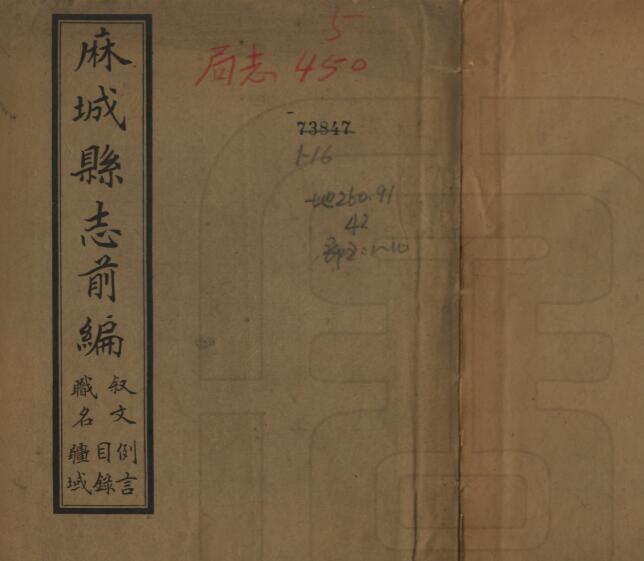 麻城縣志前編
叙文
職名
例言
目錄
疆域
5
局志 450
73847
1-16
地260.91
42